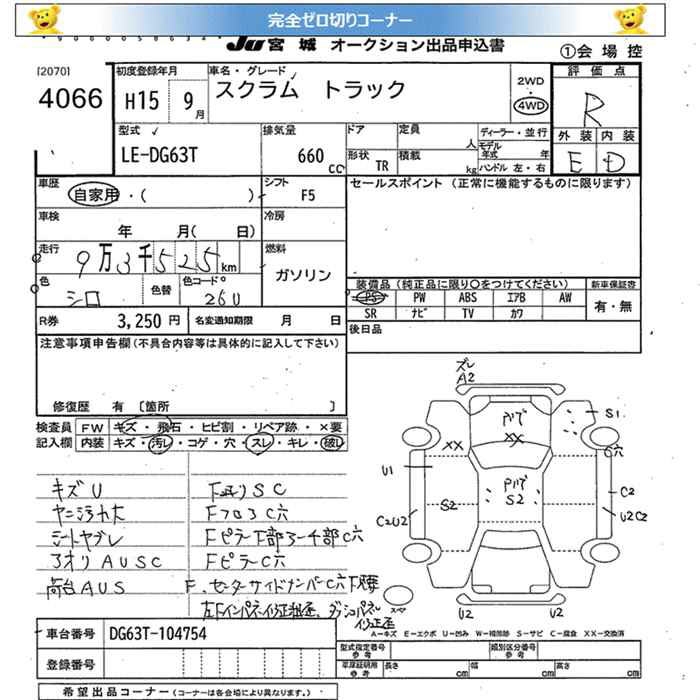 完全ゼロ切りコーナー
JU宮城 オークション出品申込書
①会場控
[2070]
4066
初度登録年月
H15 9月
車名・グレード
スクラム トラック
2WD
4WD
評価点
R
外装 内装
E D
型式
LE-DG63T
排気量
660 CC
ドア 定員 人
形状 TR 積載 kg
ディーラー・並行
モデル年式 年
ハンドル 左・右
車歴
自家用・( )
シフト
F5
セールスポイント (正常に機能するものに限ります)
車検
年 月( 日)
冷房
走行
9万3千525km
燃料
ガソリン
色
シロ
色替
色コード
26U
装備品 (純正品に限り○をつけてください)
新車保証書
PS PW ABS エアB AW
SR ナビ TV カワ
有・無
R券 3,250円
名変通知期限 月 日
後日品
注意事項申告欄 (不具合内容等は具体的に記入して下さい)
修復歴 有 [箇所 ]
検査員記入欄
FW キズ・飛石・ヒビ割・リペア跡・×要
内装 キズ・汚れ・コゲ・穴・スレ・キレ・破レ
キズU
ヤニ汚れ大
シートヤブレ
アオリAUSC
荷台AUS
下廻りSC
FフロアC穴
Fピラー下部ステップ部C穴
FピラーC穴
ズレ
A2
XX
S1
C穴
U1
C2U2
S2
S2
C2
U2C2
U2
U2
スペア
A-キズ E-エクボ U-凹み W-補修跡 S-サビ C-腐食 XX-交換済
車台番号
DG63T-104754
登録番号
型式指定番号 参考
類別区分番号 参考
車庫証明用 参考
長さ cm
幅 cm
高さ cm
希望出品コーナー (コーナーは各会場により異なります。)